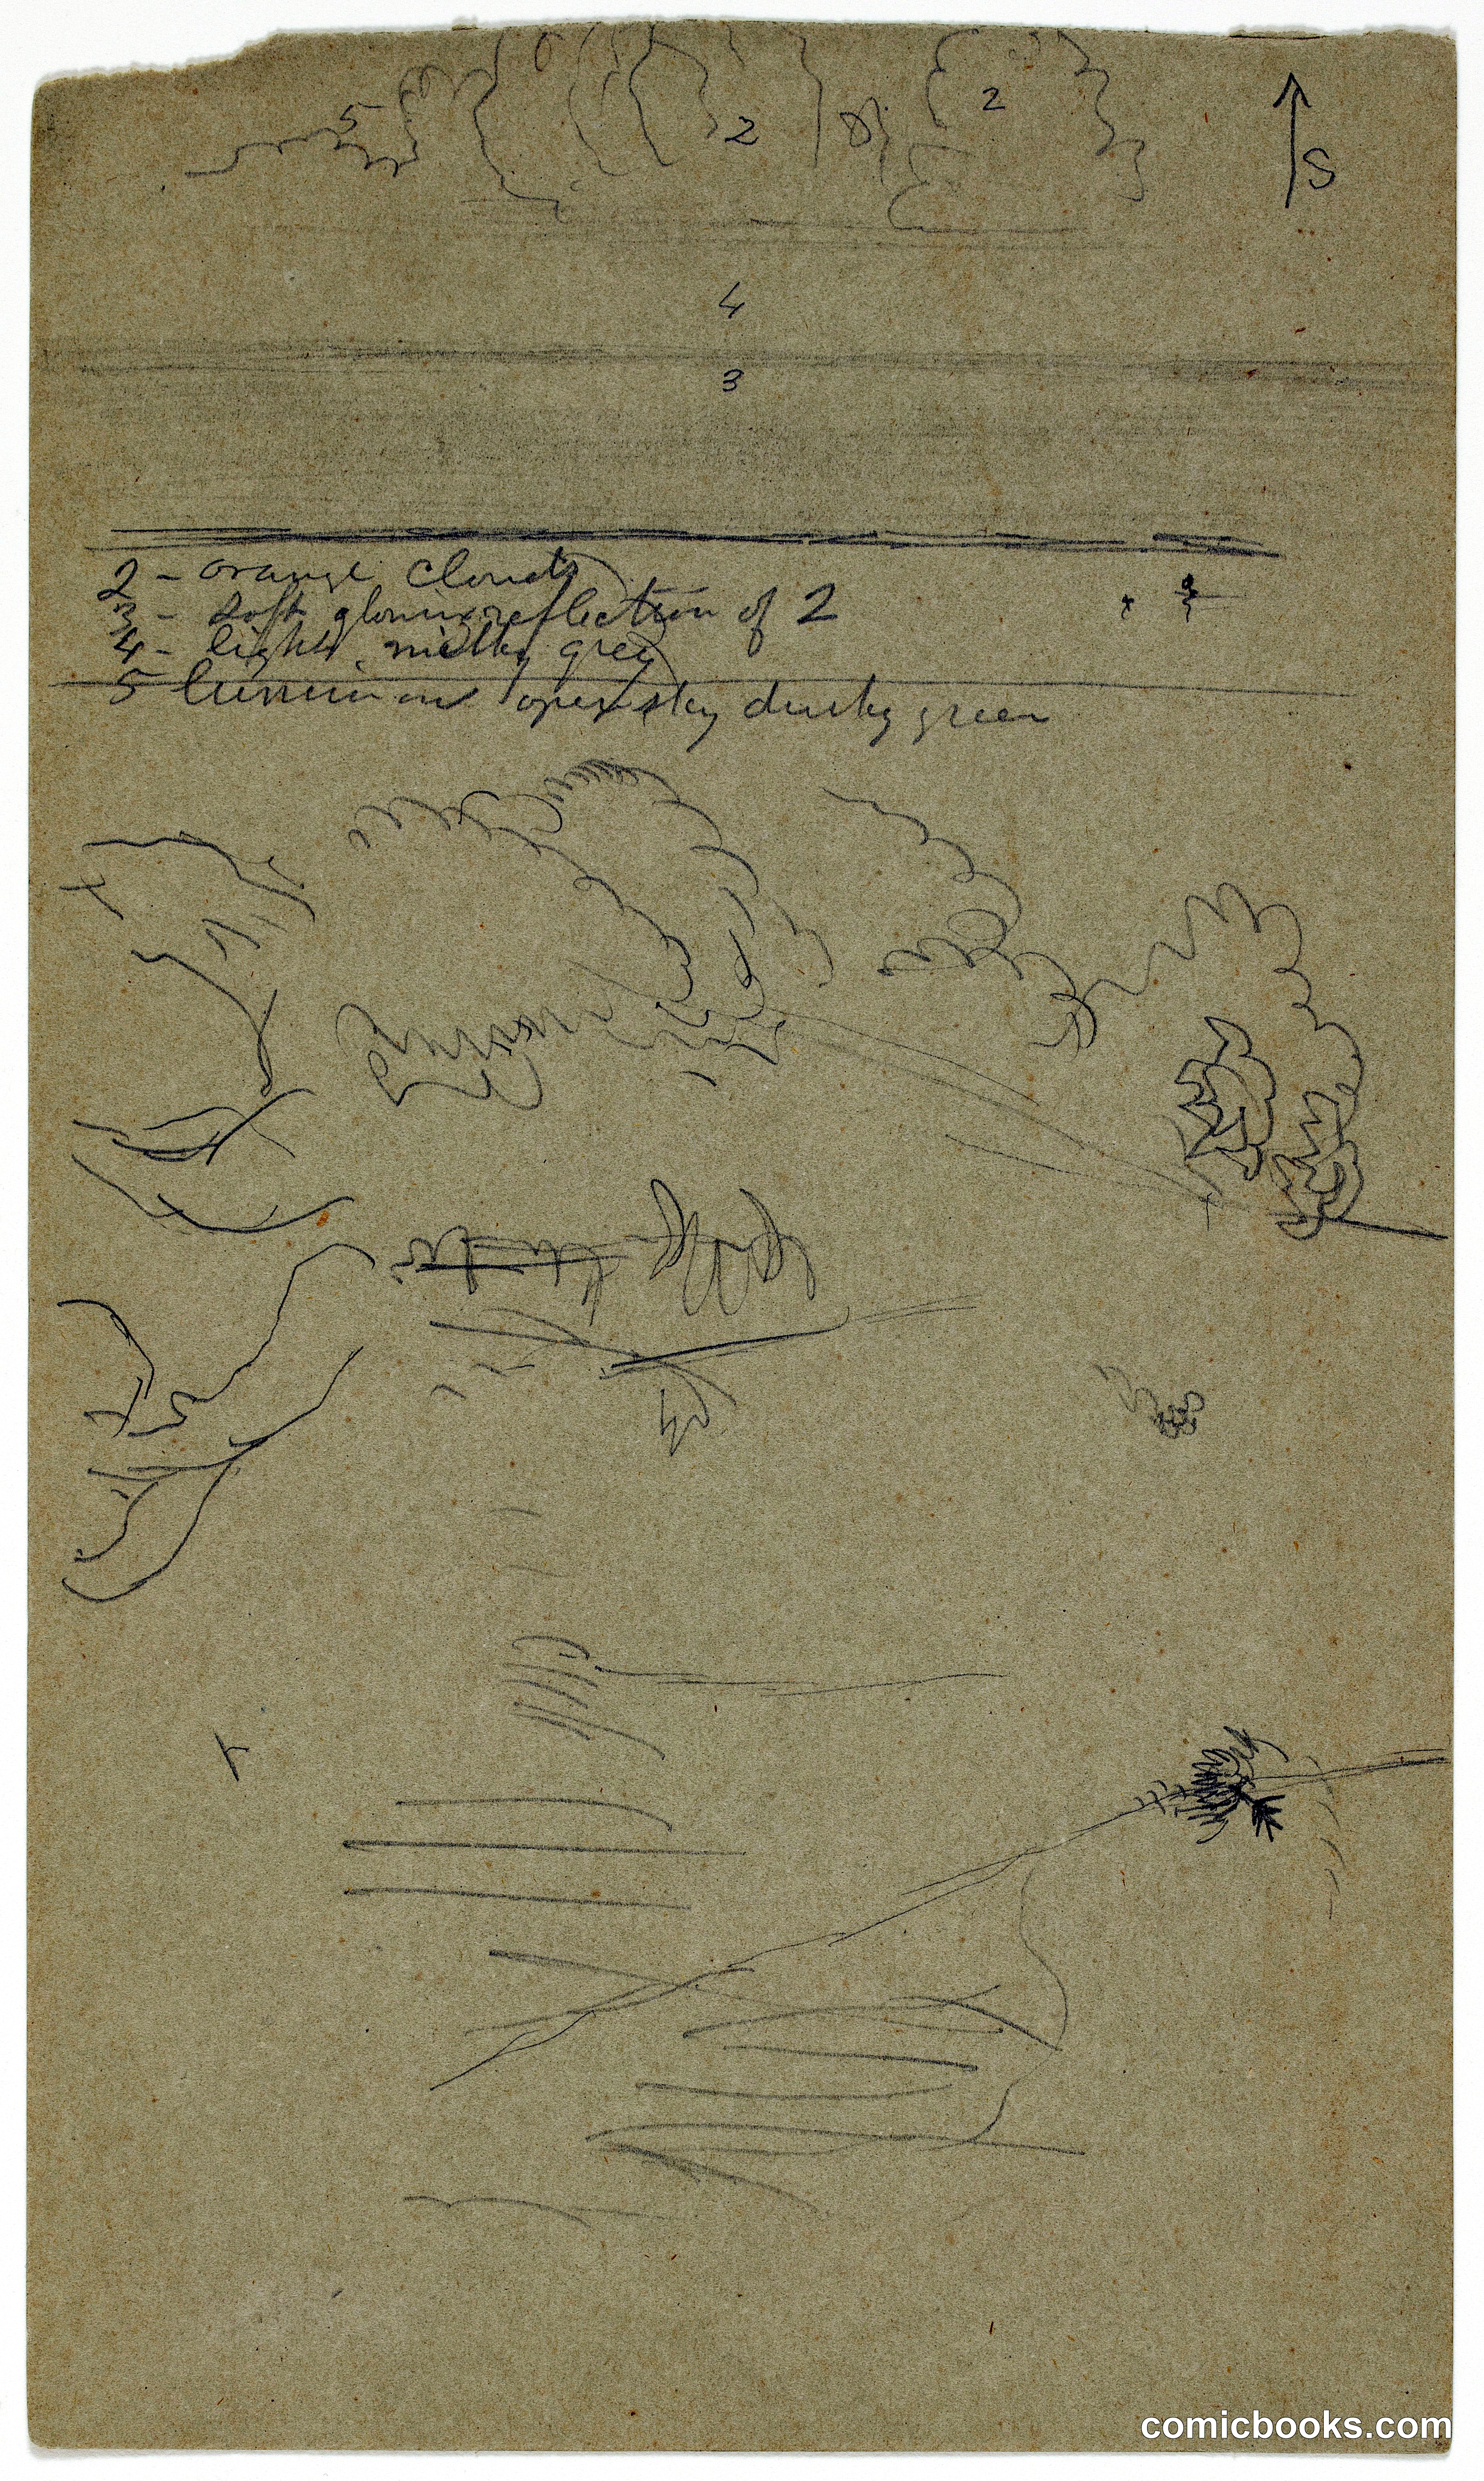 5 2 2 S
4
3
2 - orange clouds
3 - soft glowing reflection of 2
4 - light milky grey
5 luminous open sky dusky green
comicbooks.com